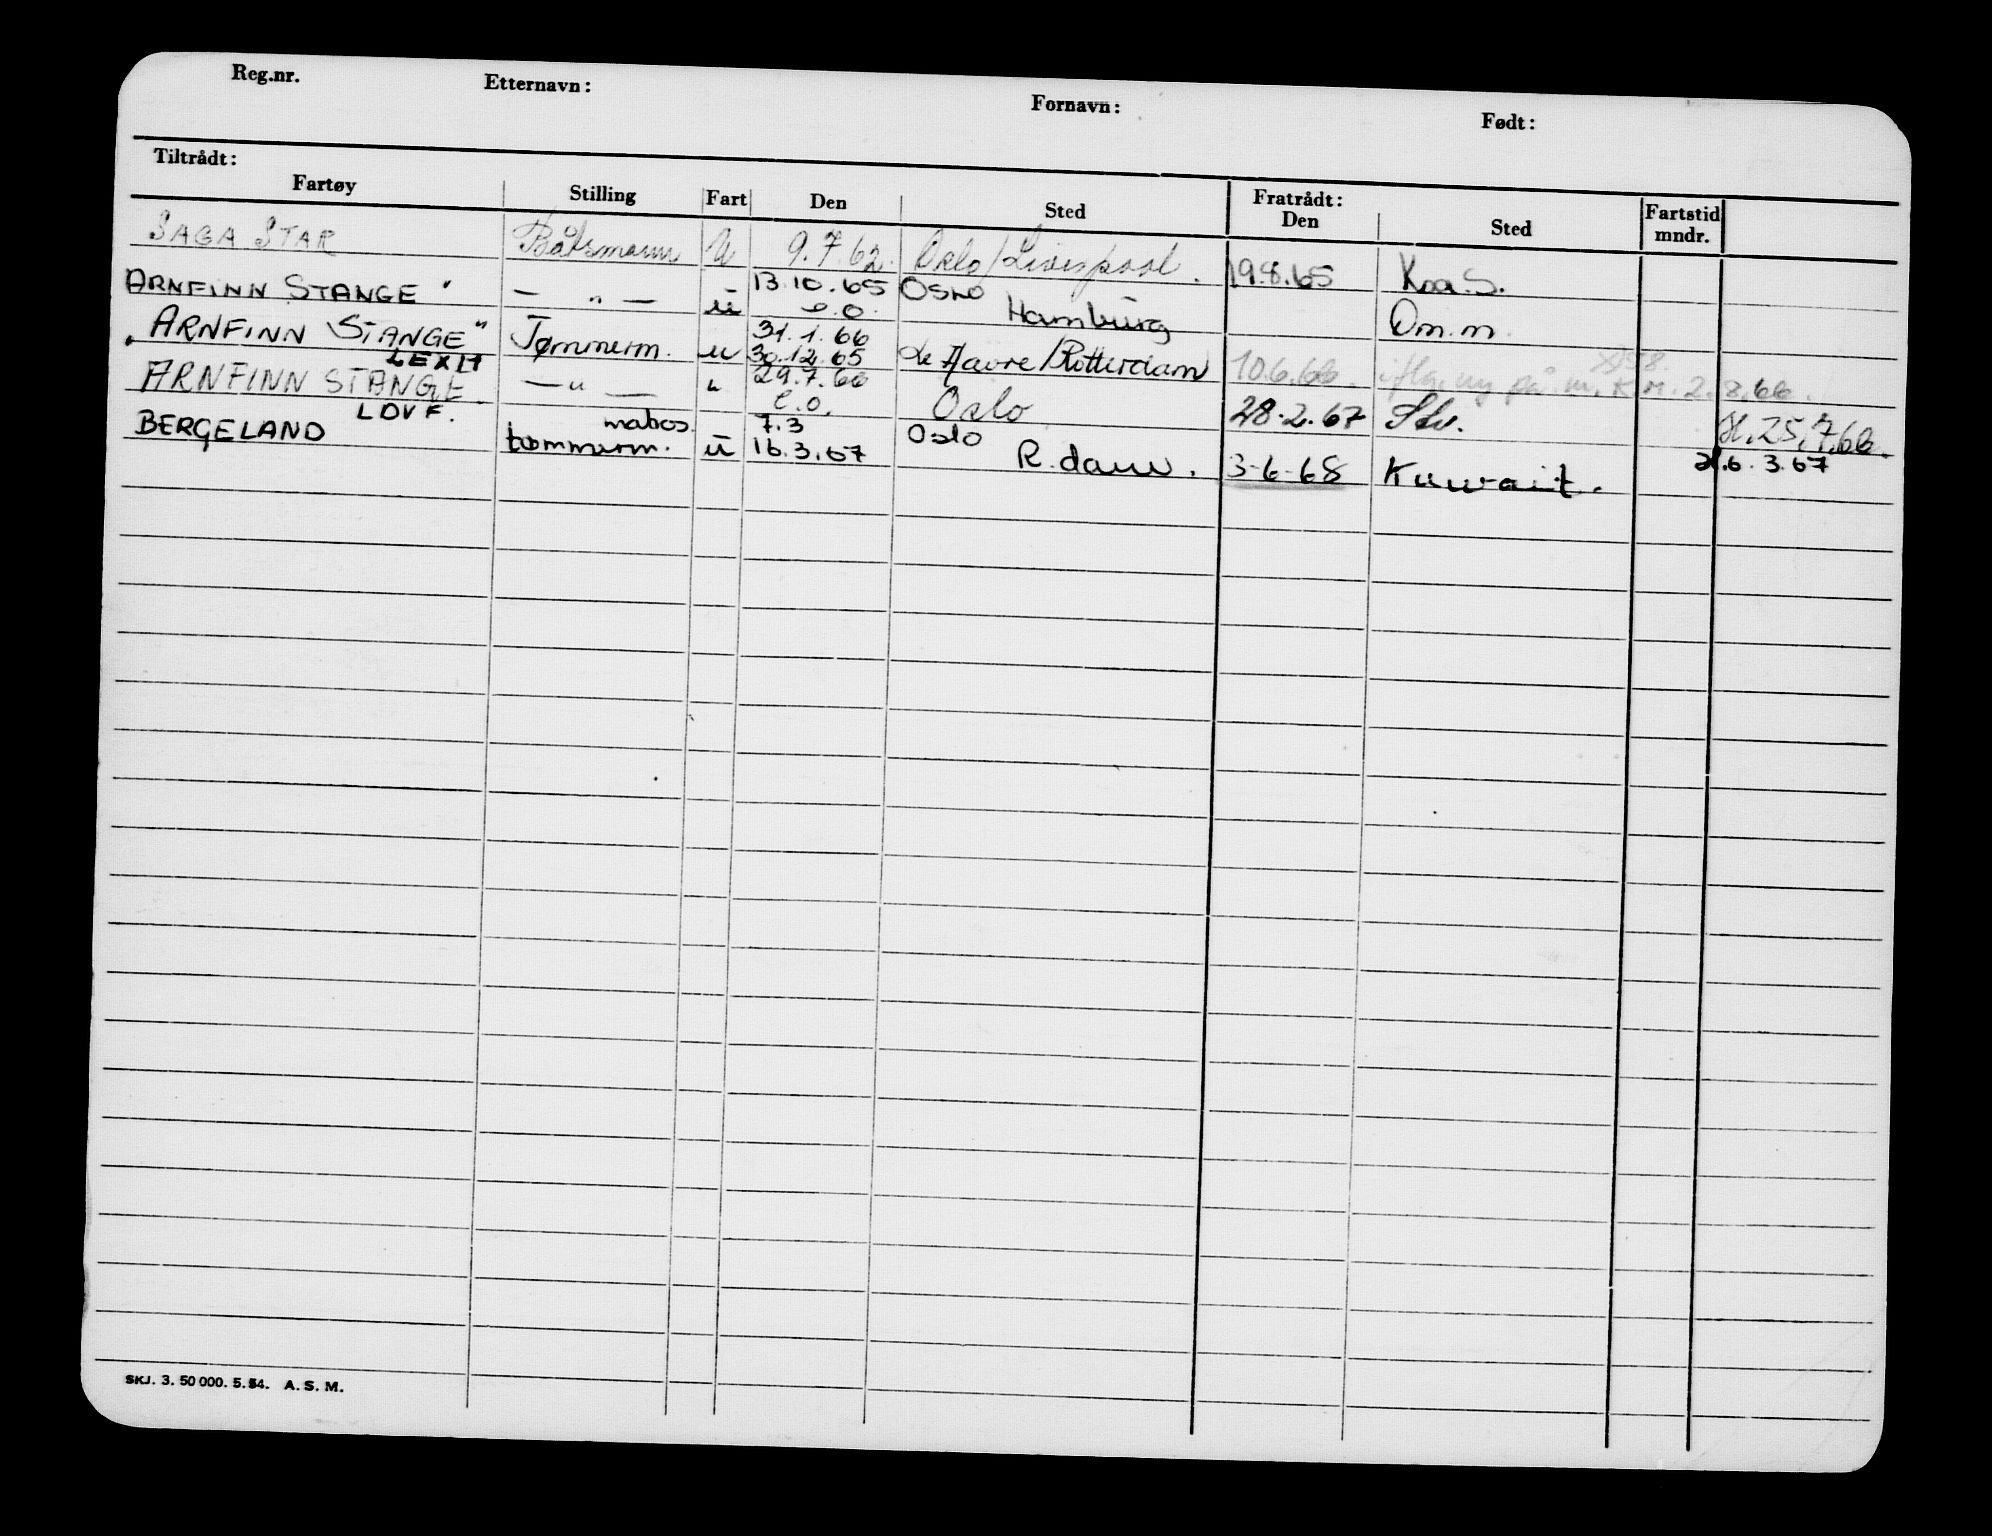 Reg.nr. Etternavn: Fornavn: Født:
Tiltrådt: Fratrådt:
Fartøy Stilling Fart Den Sted Den Sted Fartstid mndr.
SAGA STAR Båtsmann U 9.7.62. Oslo/Liverpool. 19.8.65
ARNFINN STANGE " — " — ü 13.10.65 Oslo Hamburg Om.m
"ARNFINN STANGE" Tømmerm. u 31.1.66 30.12.65 Le Havre/Rotterdam 10.6.66. på m. K.M. 2.8.66.
LEXIT
ARNFINN STANGE — " — " 29.7.66 Oslo 28.2.67 H. 25.7.66.
LDVF.
BERGELAND tømmerm. ü 7.3 16.3.67 Oslo R.dam. 3-6-68 Kuwait. 6.3.67
SKJ. 3. 50 000. 5.54. A. S. M.